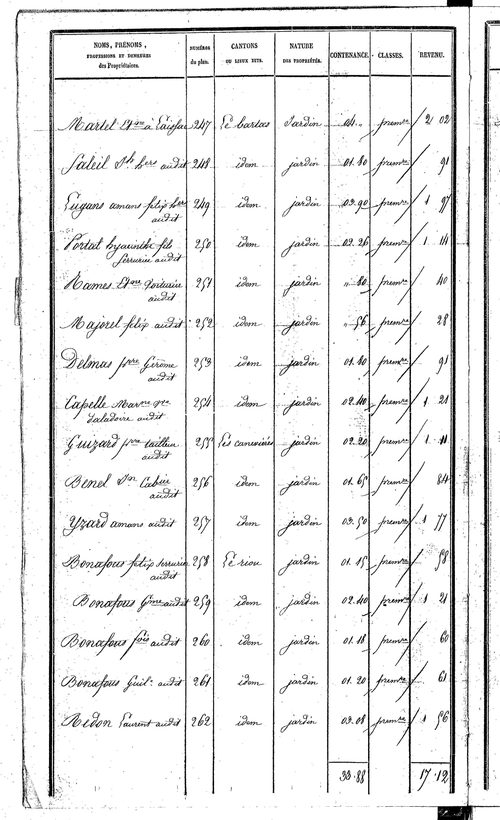 NOMS, PRÉNOMS, PROFESSIONS ET DEMEURES des Propriétaires. NUMÉROS du plan. CANTONS OU LIEUX DITS. NATURE DES PROPRIÉTÉS. CONTENANCE. CLASSES. REVENU.
Martet à 247 Le bartas Jardin 04 " premre 2 02
Saleil Jh hers audit 248 idem jardin 01.80 premre 91
amans felix hers 249 idem jardin 03.90 premre 1 97
audit
Portal hyacinthe fils 250 idem jardin 02.26 premre 1 14
serrurier audit
Rames 251 idem jardin " 80 premre 40
audit
Majorel felix audit 252 idem jardin " 56 premre 28
Delmas pre Gérome 253 idem jardin 01.80 premre 91
audit
Capelle 254 idem jardin 02.40 premre 1 21
audit
Guizard pre tailleur 255 Les canevieres jardin 02.20 premre 1 11
audit
Benel Jn 256 idem jardin 01.65 premre 84
audit
Yzard amans audit 257 idem jardin 03.50 premre 1 77
Bonafous felix serrurier 258 Le riou jardin 01.15 premre 58
audit
Bonafous Gme audit 259 idem jardin 02.40 premre 1 21
Bonafous fois audit 260 idem jardin 01.18 premre 60
Bonafous Guil. audit 261 idem jardin 01.20 premre 61
Redon Laurent audit 262 idem jardin 03.08 premre 1 56
33.88 17.12